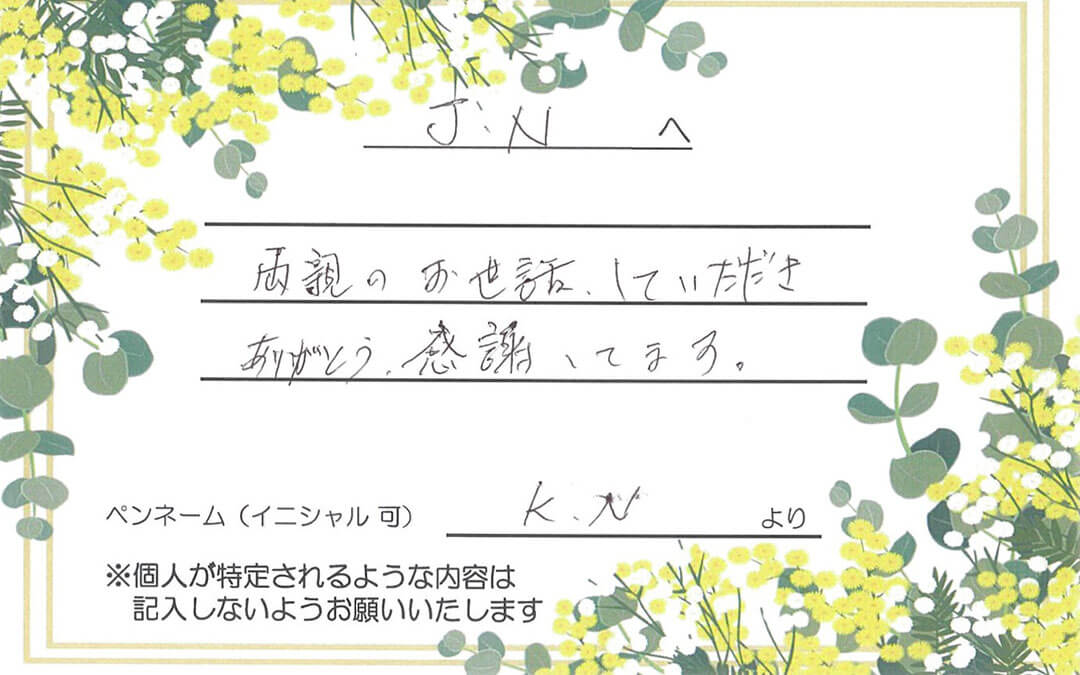 J.N へ
両親のお世話、していただき
ありがとう、感謝してます。
ペンネーム（イニシャル 可） K.N より
※個人が特定されるような内容は
記入しないようお願いいたします